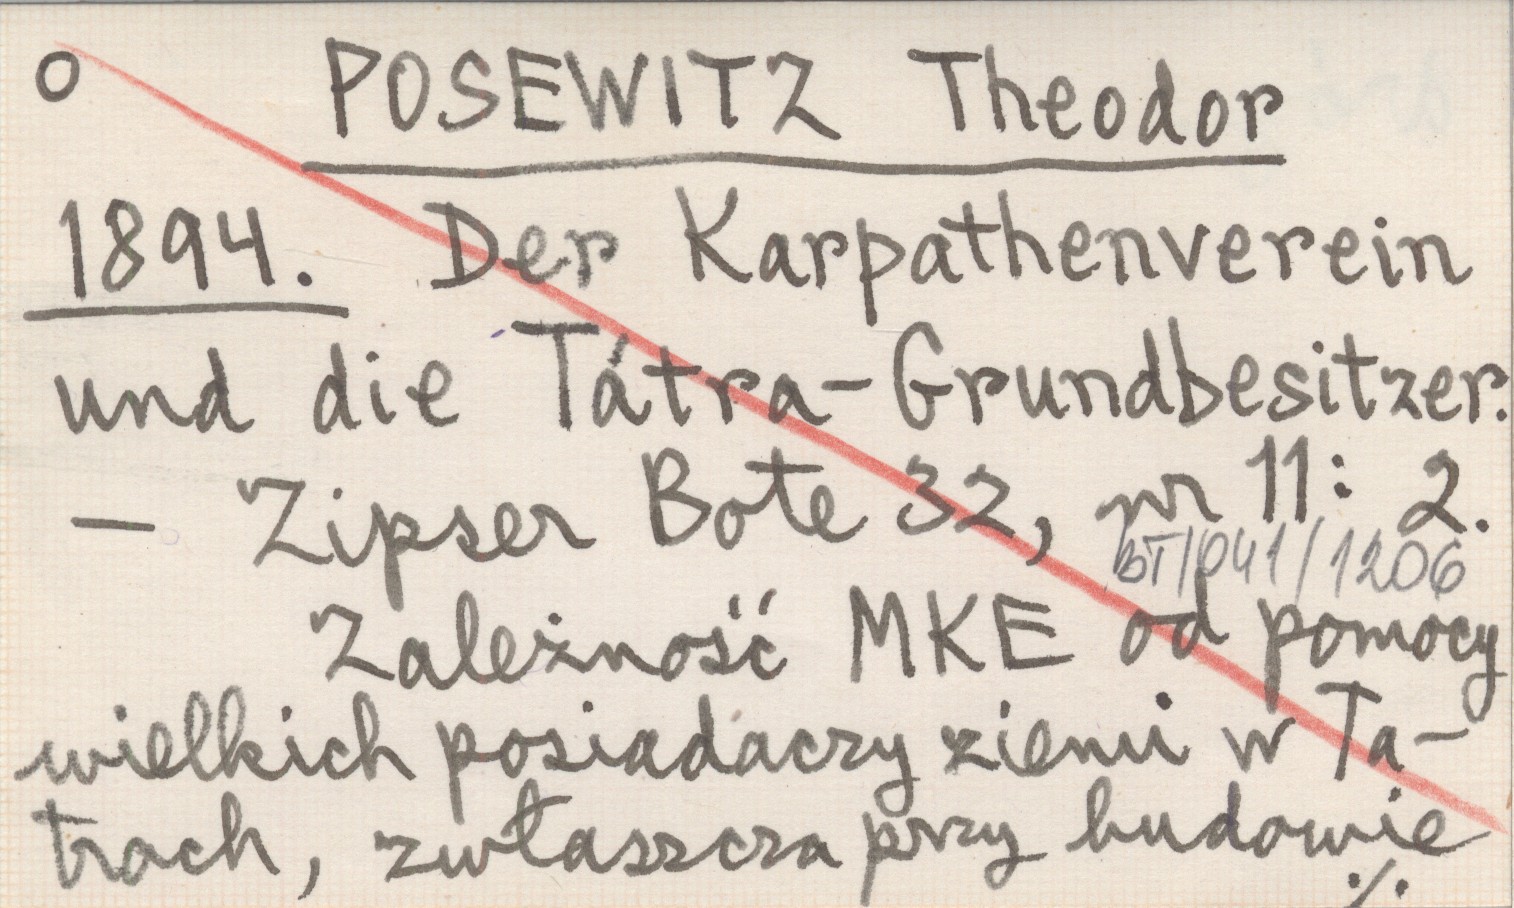 o POSEWITZ Theodor
1894. Der Karpathenverein
und die Tátra-Grundbesitzer.
— Zipser Bote 32, nr 11: 2.
BT/041/1206
Zależność MKE od pomocy
wielkich posiadaczy ziemi w Ta-
trach, zwłaszcza przy budowie
./.